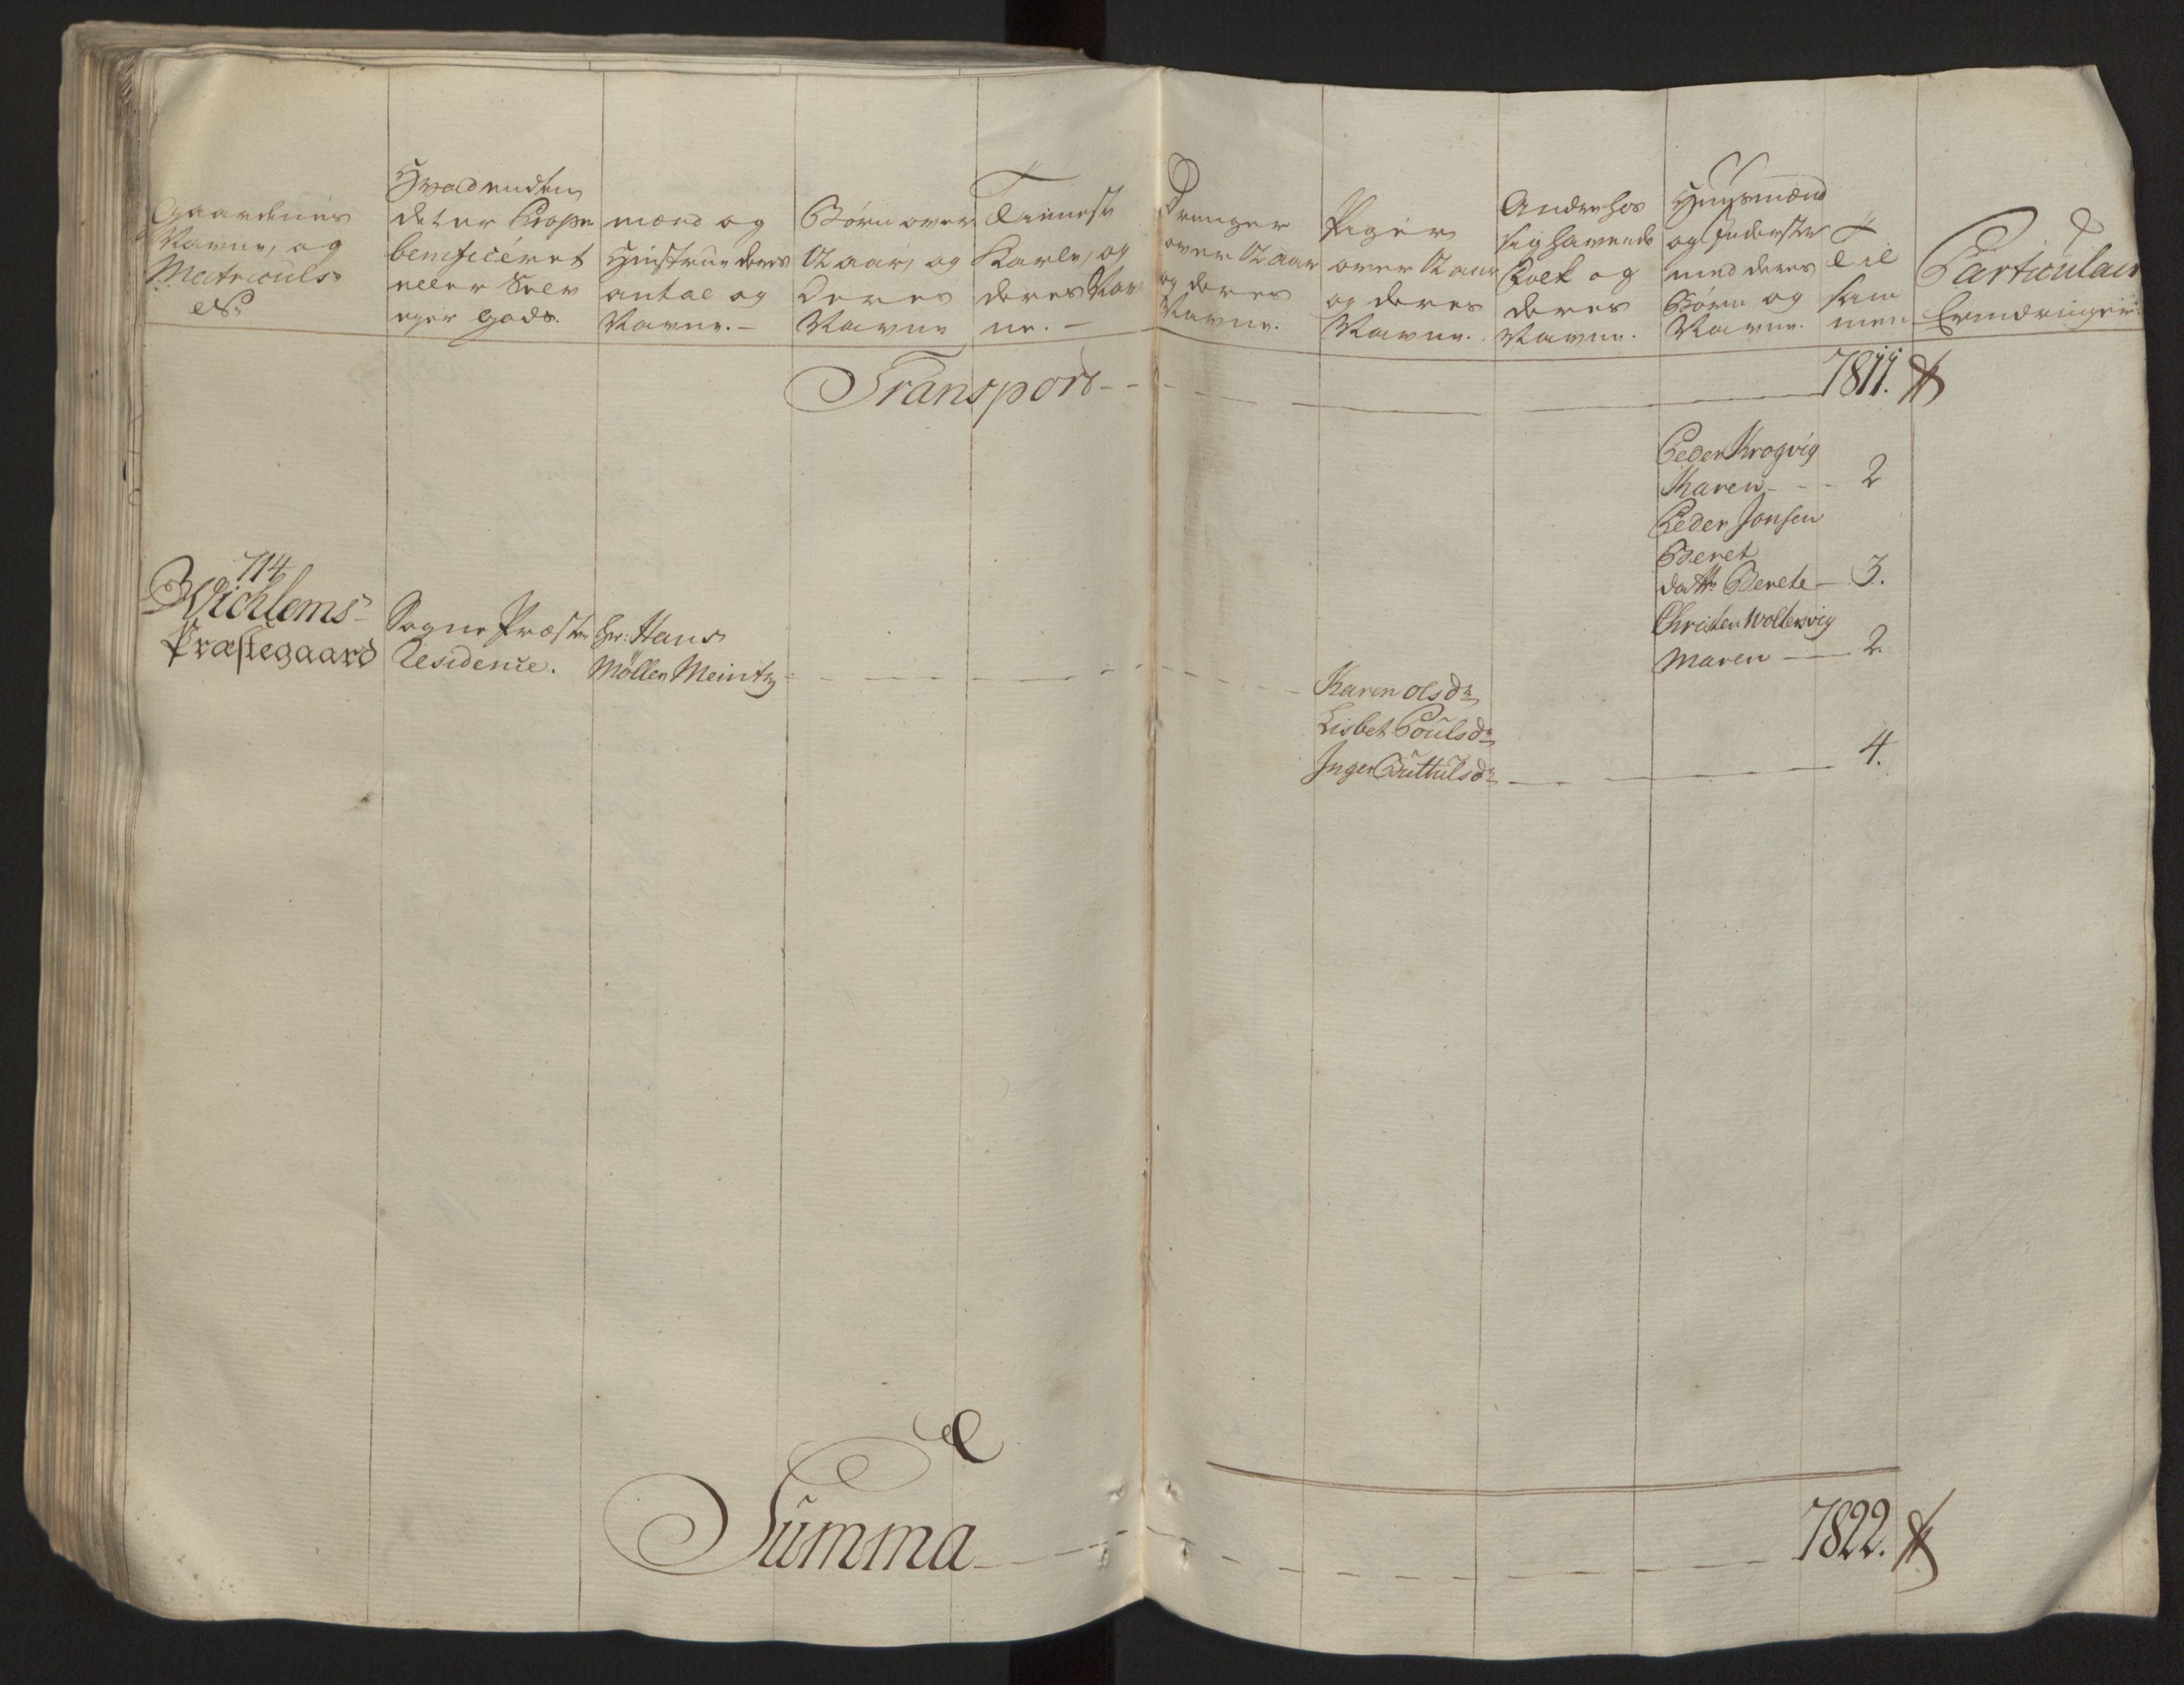 Gaardenes
Navne, og
Matriculs
No
Hvad enten
det er Prope
beneficéret
eller Selv
eger Gods.
mænd og
Hustruer deres
antal og
Navne.-
Børn over
12 aar, og
Deres
Navne
Tienneste
Karle, og
deres Nav-
ne.-
Drenger
over 12 aar
og deres
Navne.
Piger
over 12 aar
og deres
Navne.
Andre hos
sig havende
Folk og
deres
Navne.
Huusmænd
og Inderster
med deres
Børn og
Navne.
Til
sam
men
Particulair
Erindringer
Transport 7811.
Peder Krogvig
Karen - - - 2
Peder Jonsen
Beret
dattr Berete - 3.
Christen Woltersvig
Maren - 2.
714
Wichlems-
Præstegaard
Sogne Præstens
Residence.
Hr: Hans
Möller Meintz
Karen Olsdr
Lisbet Poulsdr
Inger Buttulsdr 4.
Summa 7822.